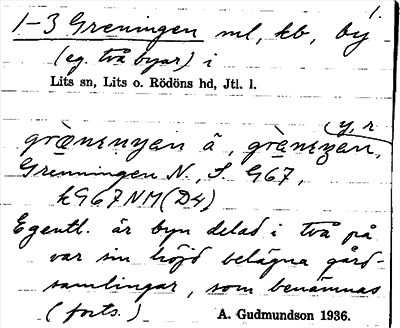 1.
1-3 Greningen ml, kb, by
(eg. två byar) i
Lits sn, Lits o. Rödöns hd, Jtl. l.
y. r
Grenningen N., S. G67,
k G67NM(D4)
Egentl. är byn delad i två på
var sin höjd belägna gård-
samlingar, som benämnas
(forts.) A. Gudmundson 1936.